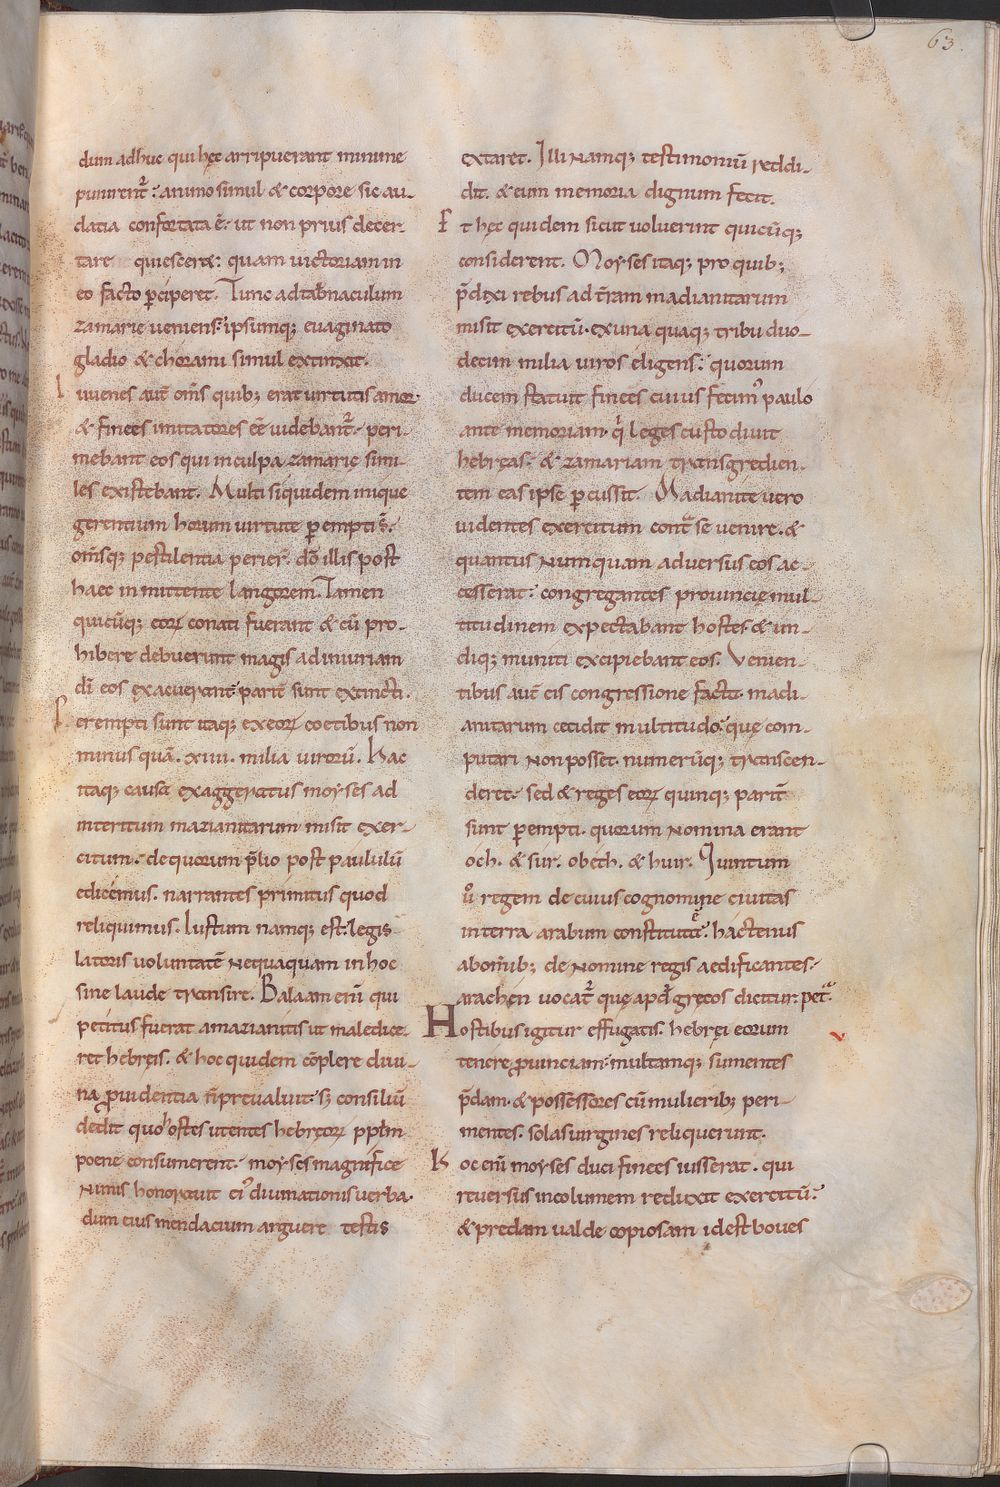 63.
dum adhuc qui hęc arripuerant minime
punirent᷑: animo simul & corpore sic au-
datia confortata ē. ut non prius decer-
tare quiesceret: quam uictoriam in
eo facto ꝑciperet. Tunc ad tab̄naculum
zamarie ueniens: ipsumq; euaginato
gladio & chorami simul extinxit.
Iuuenes aut̄ om̄s quib; erat uirtutis amor
& finees imitatores eē uidebant᷑. peri-
mebant eos qui in culpa zamarię simi-
les existebant. Multi siquidem inique
gerentium horum uirtute ꝑemptis̄.
om̄sq; pestilentia perier̄. dō illis post
haec inmittente langorem. Tamen
quicūq; eoꝝ conati fuerant & cū pro-
hibere debuerunt magis ad iniuriam
dī eos exacuerant: parit̄ sunt extincti.
Perempti sunt itaq; ex eoꝝ coetibus non
minus quā. xiiii. milia uiroꝝū. Hac
itaq; causa exaggeratus moyses ad
interitum mazianitarum misit exer-
citum. de quorum p̄lio post paululū
edicemus. narrantes primitus quod
reliquimus. Iustum namq; est: legis
latoris uoluntatē nequaquam in hoc
sine laude transire. Balaam eni̅ qui
petitus fuerat a mazianitis ut maledice-
ret hebręis. & hoc quidem cōplere diui-
na ꝓuidentia n̄ preualuit: s; consiliū
dedit quo hostes utentes hebręoꝝ ppl̄m
poene consumerent. moyses magnifice
nimis honorauit ei᷒ diuinationis uerba.
dum eius mendacium arguere testis
extaret. Illi namq; testimoniū reddi-
dit. & eum memoria dignum fecit.
Et hęc quidem sicut uoluerint quicūq;
considerent. Moyses itaq; pro quib;
p̄dixi rebus ad t̄ram madianitarum
misit exercitū. ex una quaq; tribu duo-
decim milia uiros eligens: quorum
ducem statuit finees cuius fecim᷒ paulo
ante memoriam. qͥ leges custodiuit
hebręas. & zamariam transgredien-
tem eas ipse ꝑcussit. Madianite uero
uidentes exercitum contᷓ se uenire. &
quantus numquam aduersus eos ac-
cesserat: congregantes prouincię mul-
titudinem expectabant hostes & un-
diq; muniti excipiebant eos. Uenien-
tibus aut̄ eis congressione facta. madi-
anitarum cecidit multitudo. quę com-
putari non posset. numerūq; transcen-
deret. sed & reges eoꝝ quinq; parit̄
sunt ꝑempti. quorum nomina erant
och. & sur. obech. & hur. Quintum
uͦ regem de cuius cognomine ciuitas
in terra arabum constituta ē. hactenus
ab om̄ib; de nomine regis aedificantes.
arachen uocat᷑ quę apd̄ gręcos dicitur: petᷓ.
Hostibus igitur effugatis. hebręi eorum
tenere ꝓuinciam. multamq; sumentes
p̄dam. & possessores cū mulierib; peri-
mentes. solas uirgines reliquerunt.
Hoc eni̅ moyses duci finees iusserat. qui
reuersus incolumem reduxit exercitū.
& predam ualde copiosam id est boues